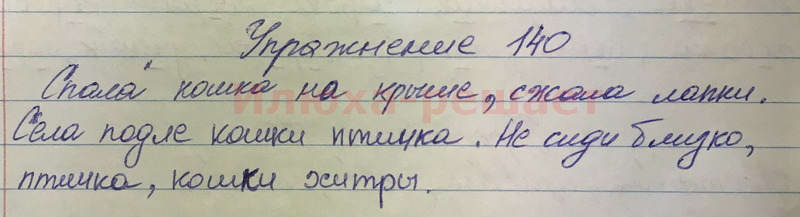 Упражнение 140
Спала кошка на крыше, сжала лапки.
илюха-решает
Села подле кошки птичка. Не сиди близко,
птичка, кошки хитры.